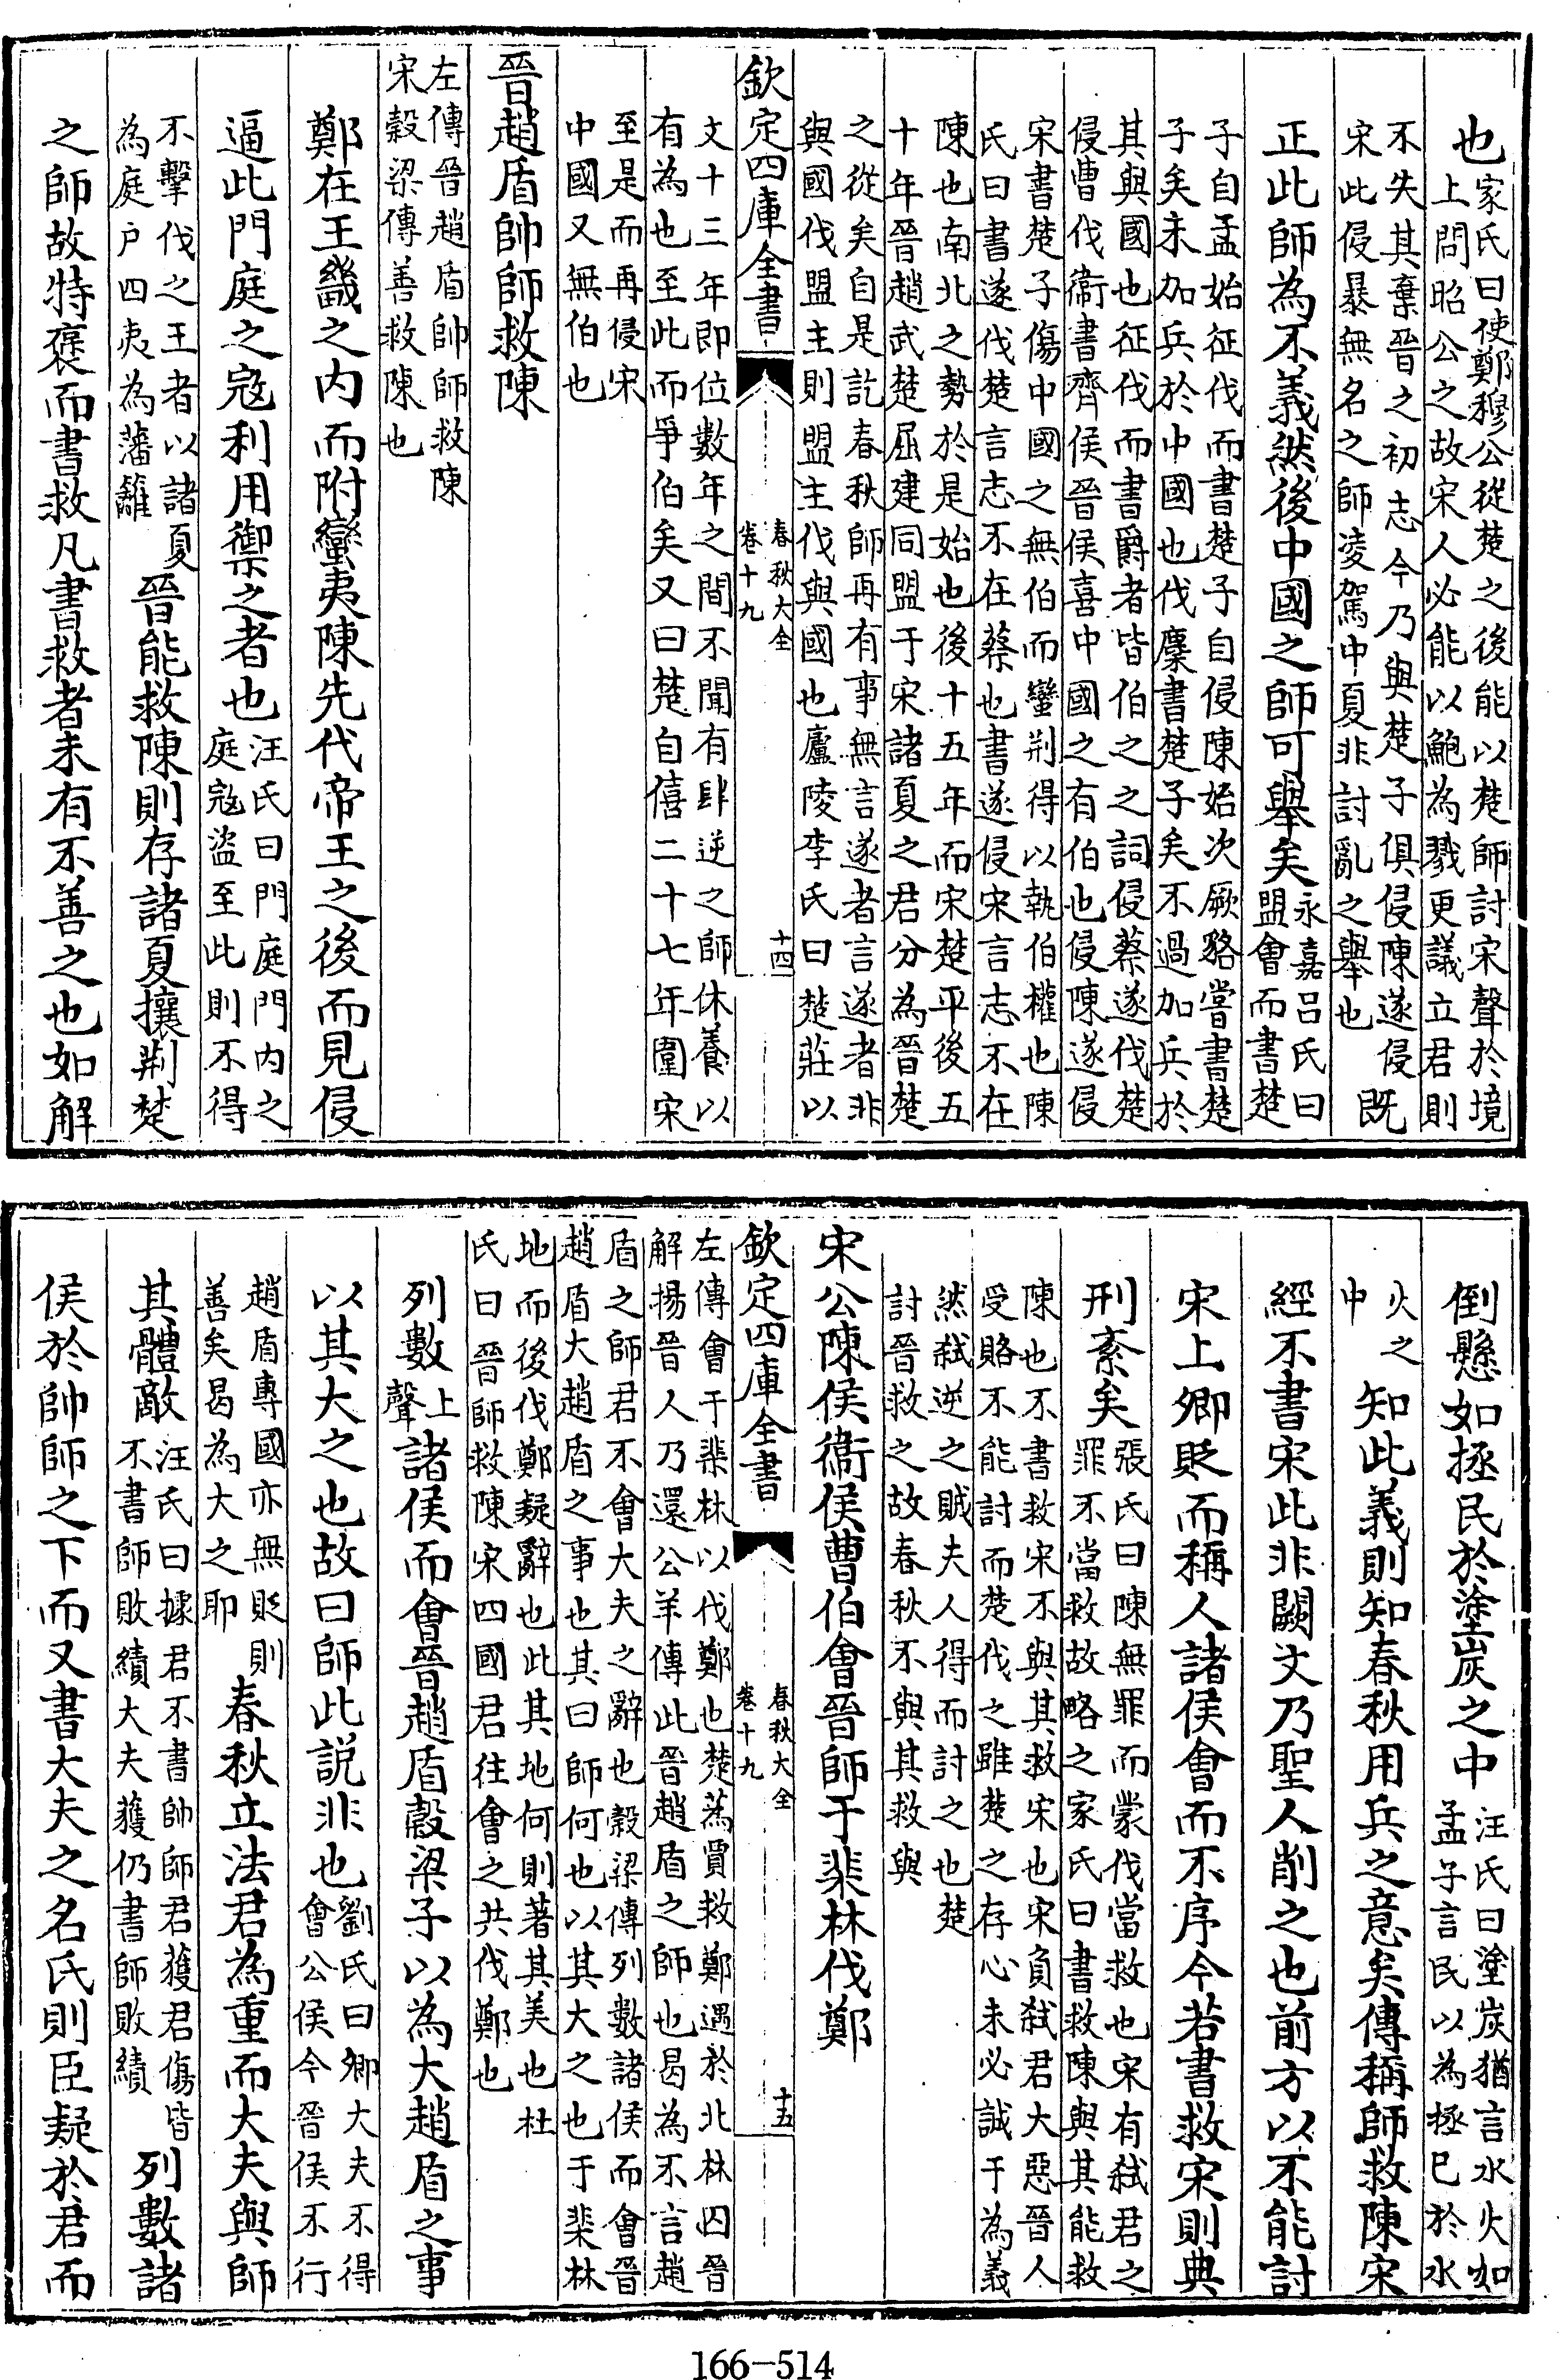 也家氏曰使鄭穆公從楚之後能以楚師討宋聲於境
上問昭公之故宋人必能以鮑為戮更議立君則
不失其棄晉之初志今乃與楚子俱侵陳遂侵
宋此侵暴無名之師凌駕中夏非討亂之舉也既
正此師為不義然後中國之師可舉矣永嘉呂氏曰
盟會而書楚
子自孟始征伐而書楚子自侵陳始次厥貉嘗書楚
子矣未加兵於中國也伐麇書楚子矣不過加兵於
其與國也征伐而書爵者皆伯之之詞侵蔡遂伐楚
侵曹伐衞書齊侯晉侯喜中國之有伯也侵陳遂侵
宋書楚子傷中國之無伯而蠻荆得以執伯權也陳
氏曰書遂伐楚言志不在蔡也書遂侵宋言志不在
陳也南北之勢於是始也後十五年而宋楚平後五
十年晉趙武楚屈建同盟于宋諸夏之君分為晉楚
之從矣自是訖春秋師再有事無言遂者言遂者非
與國伐盟主則盟主伐與國也廬陵李氏曰楚莊以
欽定四庫全書
春秋大全
卷十九
十四
文十三年即位數年之間不聞有肆逆之師休養以
有為也至此而爭伯矣又曰楚自僖二十七年圍宋
至是而再侵宋
中國又無伯也
晉趙盾帥師救陳
左傳晉趙盾帥師救陳
宋穀梁傳善救陳也
鄭在王畿之内而附蠻夷陳先代帝王之後而見侵
逼此門庭之寇利用禦之者也汪氏曰門庭門内之
庭寇盜至此則不得
不擊伐之王者以諸夏
為庭户四夷為藩籬晉能救陳則存諸夏攘荆楚
之師故特褒而書救凡書救者未有不善之也如解
倒懸如拯民於塗炭之中汪氏曰塗炭猶言水火如
孟子言民以為拯已於水
火之
中知此義則知春秋用兵之意矣傳稱師救陳宋
經不書宋此非闕文乃聖人削之也前方以不能討
宋上卿貶而稱人諸侯會而不序今若書救宋則典
刑紊矣張氏曰陳無罪而蒙伐當救也宋有弑君之
罪不當救故略之家氏曰書救陳與其能救
陳也不書救宋不與其救宋也宋負弑君大惡晉人
受賂不能討而楚伐之雖楚之存心未必誠于為義
然弑逆之賊夫人得而討之也楚
討晉救之故春秋不與其救與
宋公陳侯衞侯曹伯會晉師于棐林伐鄭
欽定四庫全書
春秋大全
卷十九
十五
左傳會于棐林以伐鄭也楚蒍賈救鄭遇於北林囚晉
解揚晉人乃還公羊傳此晉趙盾之師也曷為不言趙
盾之師君不會大夫之辭也穀梁傳列數諸侯而會晉
趙盾大趙盾之事也其曰師何也以其大之也于棐林
地而後伐鄭疑辭也此其地何則著其美也杜
氏曰晉師救陳宋四國君往會之共伐鄭也
列數上
聲諸侯而會晉趙盾穀梁子以為大趙盾之事
以其大之也故曰師此説非也劉氏曰卿大夫不得
會公侯今晉侯不行
趙盾專國亦無貶則
善矣曷為大之耶春秋立法君為重而大夫與師
其體敵汪氏曰據君不書帥師君獲君傷皆
不書師敗績大夫獲仍書師敗績列數諸
侯於帥師之下而又書大夫之名氏則臣疑於君而
166-514